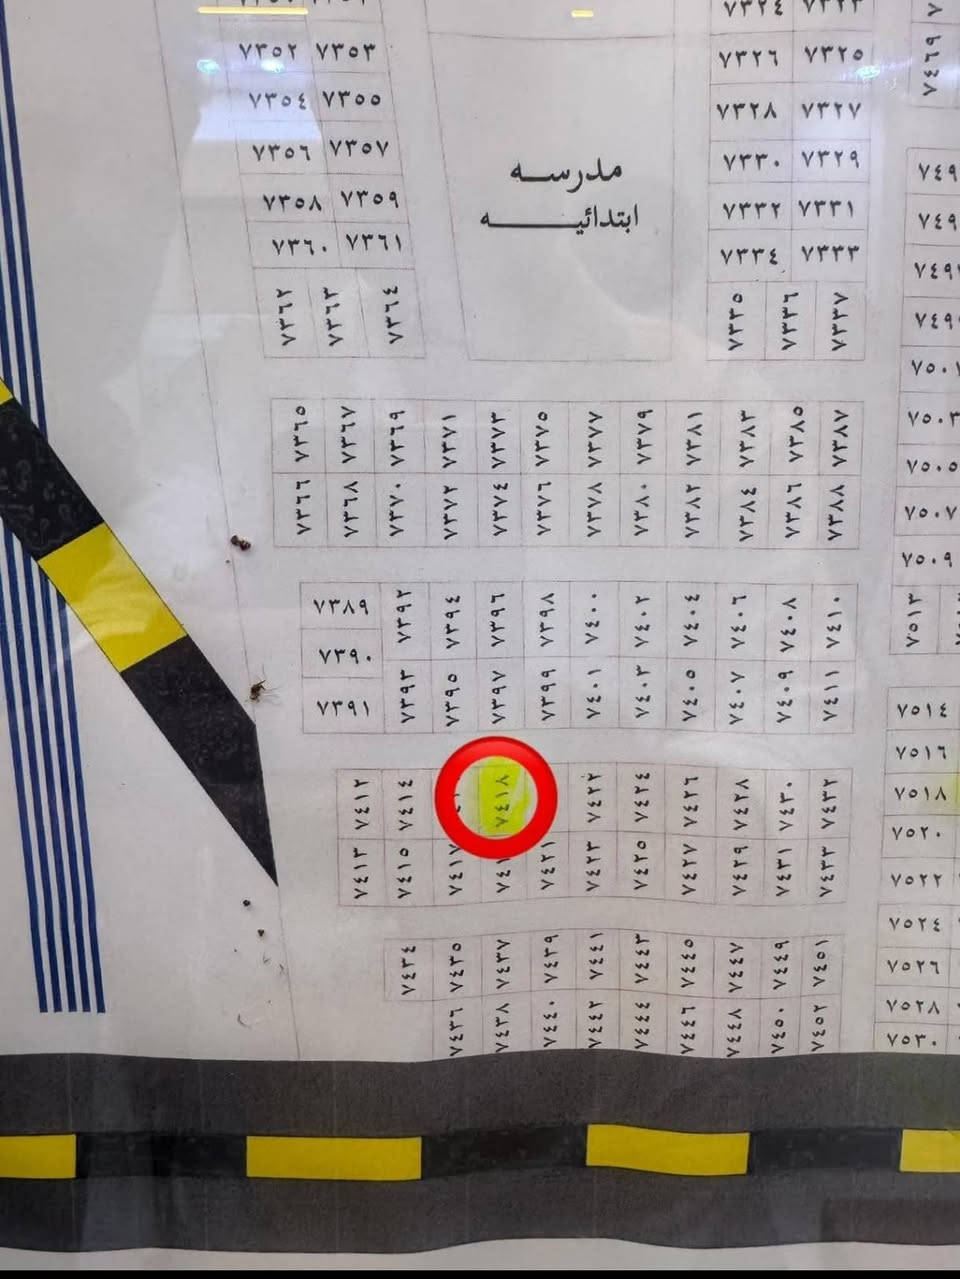 ٧٣٢٤ ٧٣٢٣
٧٣٥٢ ٧٣٥٣ ٧٣٢٦ ٧٣٢٥ ٧٤٦٩
٧٣٥٤ ٧٣٥٥ ٧٣٢٨ ٧٣٢٧
٧٣٥٦ ٧٣٥٧ ٧٣٣٠ ٧٣٢٩
مدرسه
ابتدائيه
٧٣٥٨ ٧٣٥٩ ٧٣٣٢ ٧٣٣١
٧٣٦٠ ٧٣٦١ ٧٣٣٤ ٧٣٣٣
٧٣٦٢ ٧٣٦٣ ٧٣٦٤ ٧٣٣٥ ٧٣٣٦ ٧٣٣٧
٧٣٦٥ ٧٣٦٧ ٧٣٦٩ ٧٣٧١ ٧٣٧٣ ٧٣٧٥ ٧٣٧٧ ٧٣٧٩ ٧٣٨١ ٧٣٨٣ ٧٣٨٥ ٧٣٨٧ ٧٥٠٣
٧٥٠٥
٧٣٦٦ ٧٣٦٨ ٧٣٧٠ ٧٣٧٢ ٧٣٧٤ ٧٣٧٦ ٧٣٧٨ ٧٣٨٠ ٧٣٨٢ ٧٣٨٤ ٧٣٨٦ ٧٣٨٨ ٧٥٠٧
٧٥٠٩
٧٣٨٩ ٧٣٩٢ ٧٣٩٤ ٧٣٩٦ ٧٣٩٨ ٧٤٠٠ ٧٤٠٢ ٧٤٠٤ ٧٤٠٦ ٧٤٠٨ ٧٤١٠ ٧٥١٣
٧٣٩٠
٧٣٩١ ٧٣٩٣ ٧٣٩٥ ٧٣٩٧ ٧٣٩٩ ٧٤٠١ ٧٤٠٣ ٧٤٠٥ ٧٤٠٧ ٧٤٠٩ ٧٤١١ ٧٥١٤
٧٥١٦
٧٤١٢ ٧٤١٤ ٧٤١٨ ٧٤٢٢ ٧٤٢٤ ٧٤٢٦ ٧٤٢٨ ٧٤٣٠ ٧٤٣٢ ٧٥١٨
٧٥٢٠
٧٤١٣ ٧٤١٥ ٧٤١٧ ٧٤٢١ ٧٤٢٣ ٧٤٢٥ ٧٤٢٧ ٧٤٢٩ ٧٤٣١ ٧٤٣٣ ٧٥٢٢
٧٥٢٤
٧٤٣٤ ٧٤٣٥ ٧٤٣٧ ٧٤٣٩ ٧٤٤١ ٧٤٤٣ ٧٤٤٥ ٧٤٤٧ ٧٤٤٩ ٧٤٥١ ٧٥٢٦
٧٥٢٨
٧٤٣٦ ٧٤٣٨ ٧٤٤٠ ٧٤٤٢ ٧٤٤٤ ٧٤٤٦ ٧٤٤٨ ٧٤٥٠ ٧٤٥٢ ٧٥٣٠